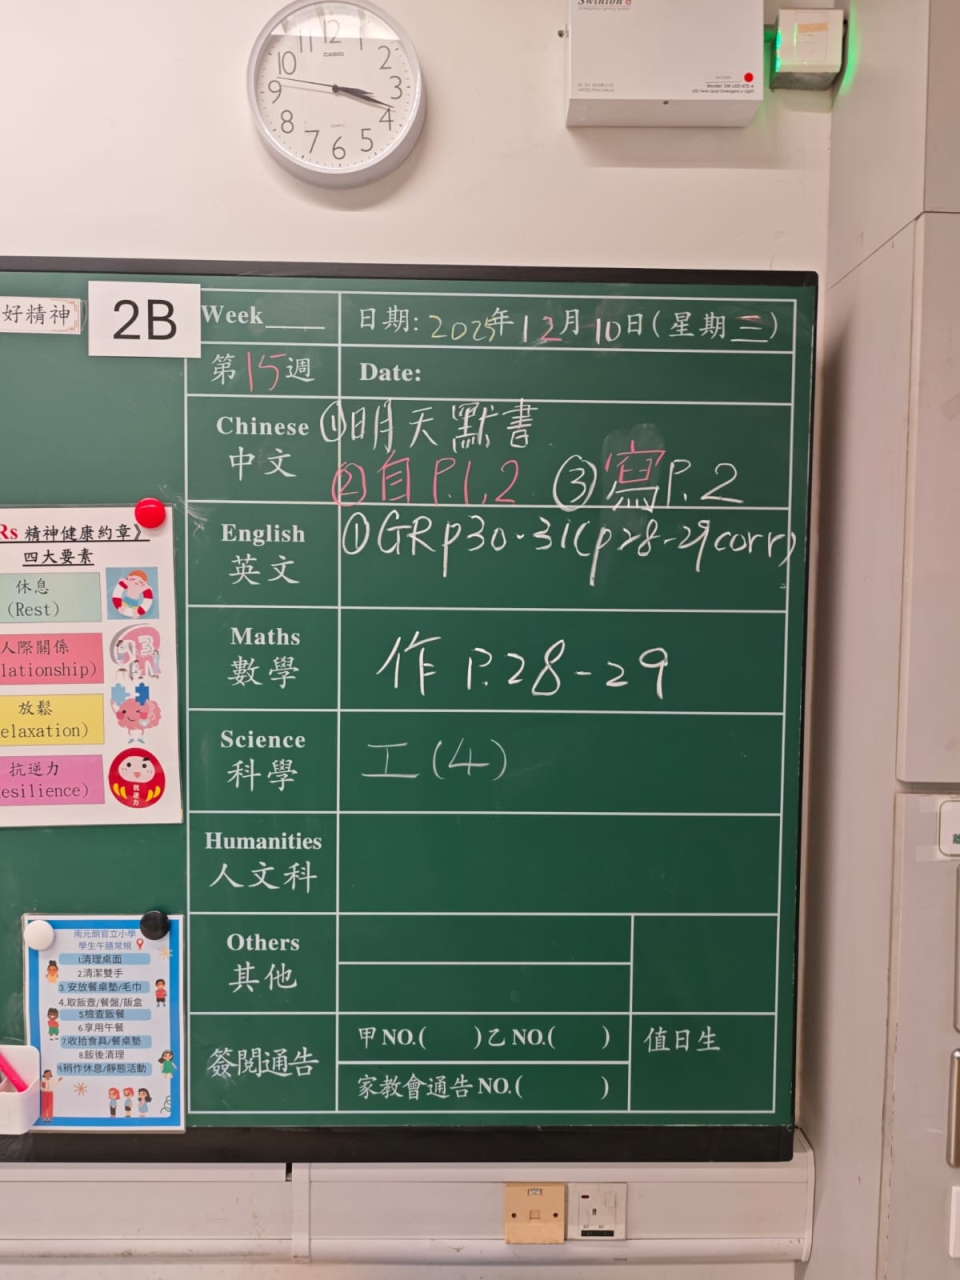 12
11
2
10
3
9
4
8
5
7
6
CASIO
QUARTZ
Swinton
好精神
2B
Week____
日期: 2025年12月10日(星期三)
第15週
Date:
Chinese
中文
①明天默書
②自P.1,2 ③寫P.2
English
英文
①GR p30-31(p28-29corr)
Maths
數學
作 P.28-29
Science
科學
工(4)
Humanities
人文科
Others
其他
簽閱通告
甲NO.( )乙NO.( )
家教會通告NO.( )
值日生
Rs 精神健康約章》
四大要素
休息
(Rest)
人際關係
lationship)
放鬆
elaxation)
抗逆力
esilience)
抗逆力
南元朗官立小學
學生午膳常規
1清理桌面
2.清潔雙手
3 安放餐桌墊/毛巾
4.取飯壺/餐盤/飯盒
5.檢查飯餐
6.享用午餐
7.收拾食具/餐桌墊
8.飯後清理
9.稍作休息/靜態活動